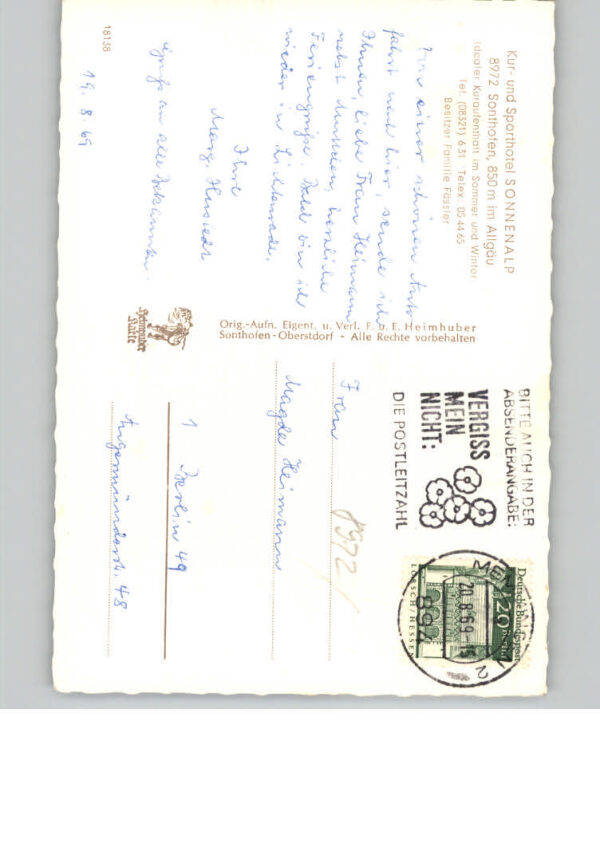 Kur- und Sporthotel SONNENALP
8972 Sonthofen, 850 m im Allgäu
Idealer Kuraufenthalt im Sommer und Winter
Tel. (08321) 6 31 Telex: 05 44 65
Besitzer Familie Fässler
Von einer schönen Auto-
fahrt nach hier, sende ich
Ihnen, liebe Frau Heimann
nebst herzliche
Feriengrüße. Bald bin ich
wieder in Lichtenrade.
Ihre
Marg.
Gruß an alle Bekannten.
19.8.69
18138
Orig.-Aufn. Eigent. u. Verl. F. u. E. Heimhuber
Sonthofen-Oberstdorf - Alle Rechte vorbehalten
Heimhuber
Karte
BITTE AUCH IN DER
ABSENDERANGABE:
VERGISS
MEIN
NICHT:
DIE POSTLEITZAHL
Deutsche Bundespost
20
LORSCH/HESSEN
894
20.8.69-15
2
8972
Frau
Magda Heimann
1 Berlin 49
Angermünderstr. 48